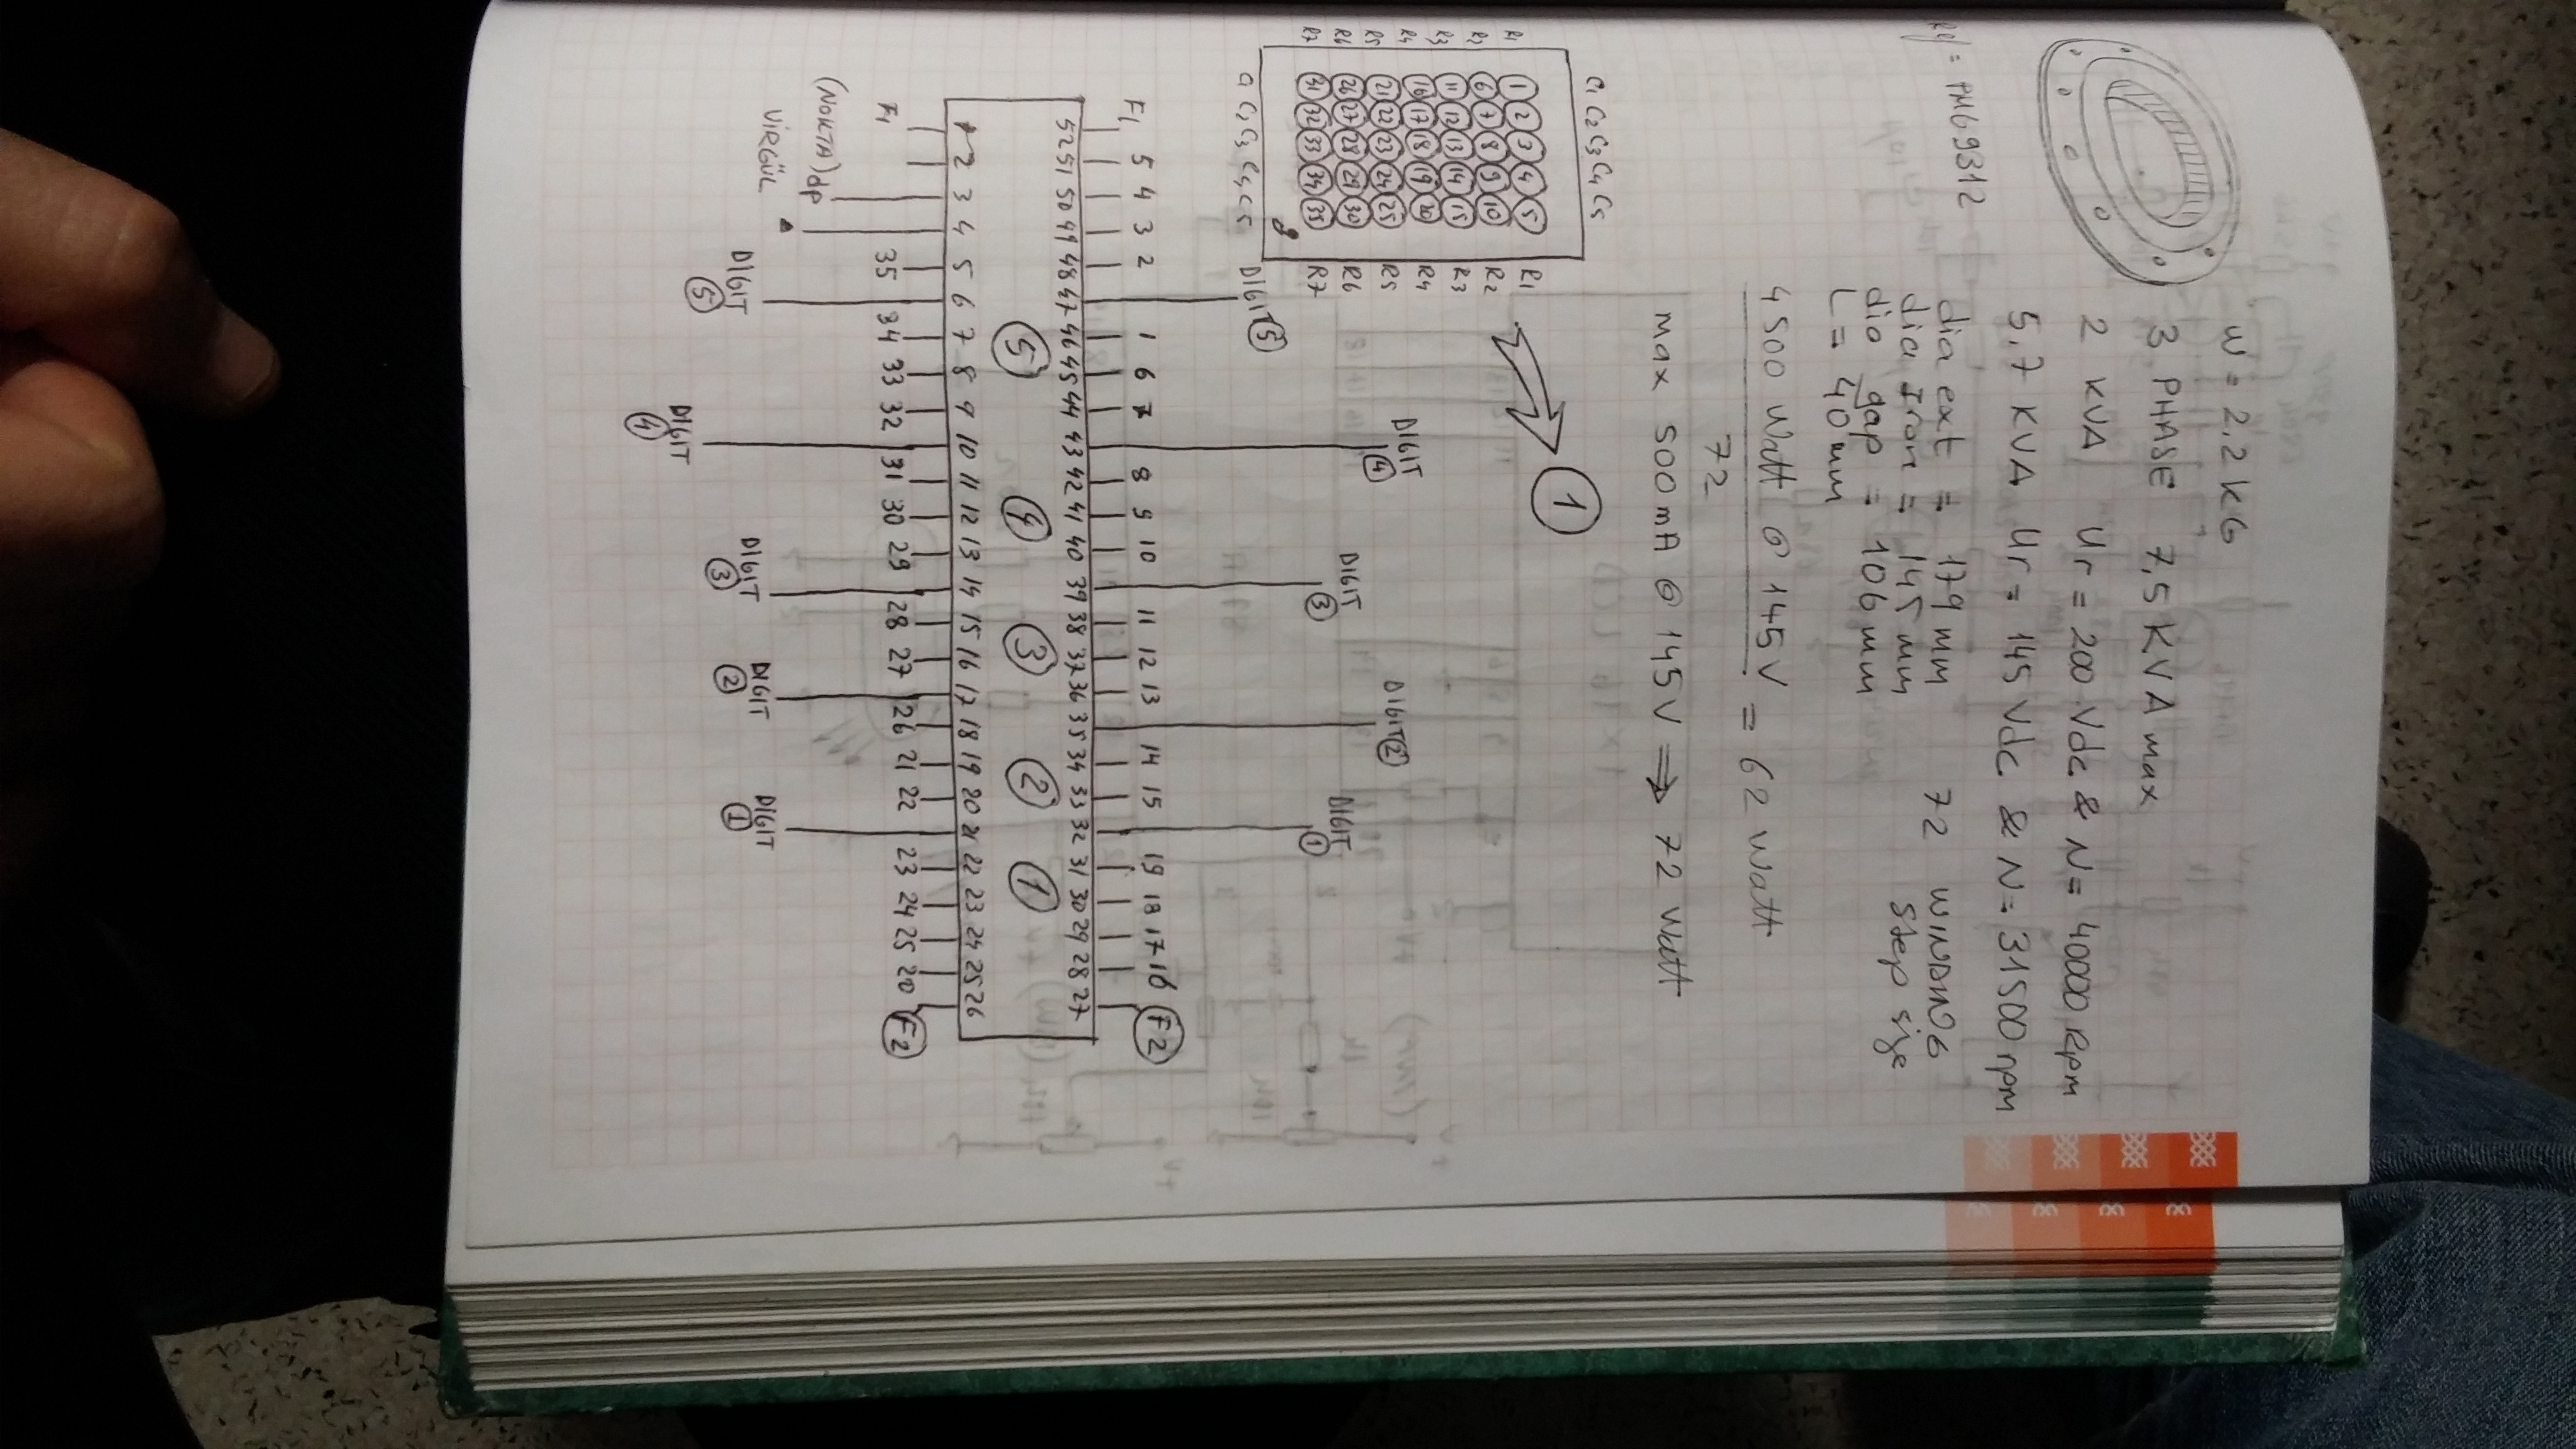 W = 2.2 KG
3 PHASE 7,5 KVA max
2 KVA Ur = 200 Vdc & N = 40000 Rpm
5.7 KVA Ur = 145 Vdc & N = 31500 rpm
Ref = PMG9312
dia ext = 179 mm 72 WINDING
dia Iron = 145 mm Step size
dia gap = 106 mm
L = 40 mm
4500 Watt @ 145 V = 62 Watt
72
max 500 mA @ 145 V ⇒ 72 Watt
C1 C2 C3 C4 C5
1
R1 1 2 3 4 5 R1
R2 6 7 8 9 10 R2
R3 11 12 13 14 15 R3
R4 16 17 18 19 20 R4
R5 21 22 23 24 25 R5
R6 26 27 28 29 30 R6
R7 31 32 33 34 35 R7
C1 C2 C3 C4 C5
DIGIT 5
DIGIT 4
DIGIT 3
DIGIT 2
DIGIT 1
F1 5 4 3 2 1 6 7 8 9 10 11 12 13 14 15 19 18 17 16 F2
52 51 50 49 48 47 46 45 44 43 42 41 40 39 38 37 36 35 34 33 32 31 30 29 28 27
5 4 3 2 1
1 2 3 4 5 6 7 8 9 10 11 12 13 14 15 16 17 18 19 20 21 22 23 24 25 26
F1 35 34 33 32 31 30 29 28 27 26 21 22 23 24 25 20 F2
(NOKTA) dp
VİRGÜL
DIGIT 5
DIGIT 4
DIGIT 3
DIGIT 2
DIGIT 1